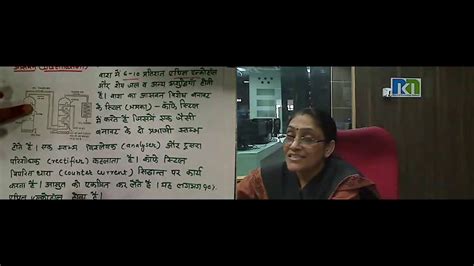 वाश में 6-10 प्रतिशत एथिल एल्कोहॉल
और शेष जल व अन्य अशुद्धियां होती
हैं। वाश का आसवन विशेष बनावट
के स्टिल (भभका) - कॉफे स्टिल
में करते हैं जिसमें एक जैसी
बनावट के दो प्रभाजी स्तम्भ
होते हैं। एक स्तम्भ विश्लेषक (analyser) और दूसरा
परिशोधक (rectifier) कहलाता है। कॉफे स्टिल
विपरित धारा (counter current) सिद्धान्त पर कार्य
करता है। आसुत को एकत्रित कर लेते हैं। यह लगभग 90%
एथिल एल्कोहॉल होता है।